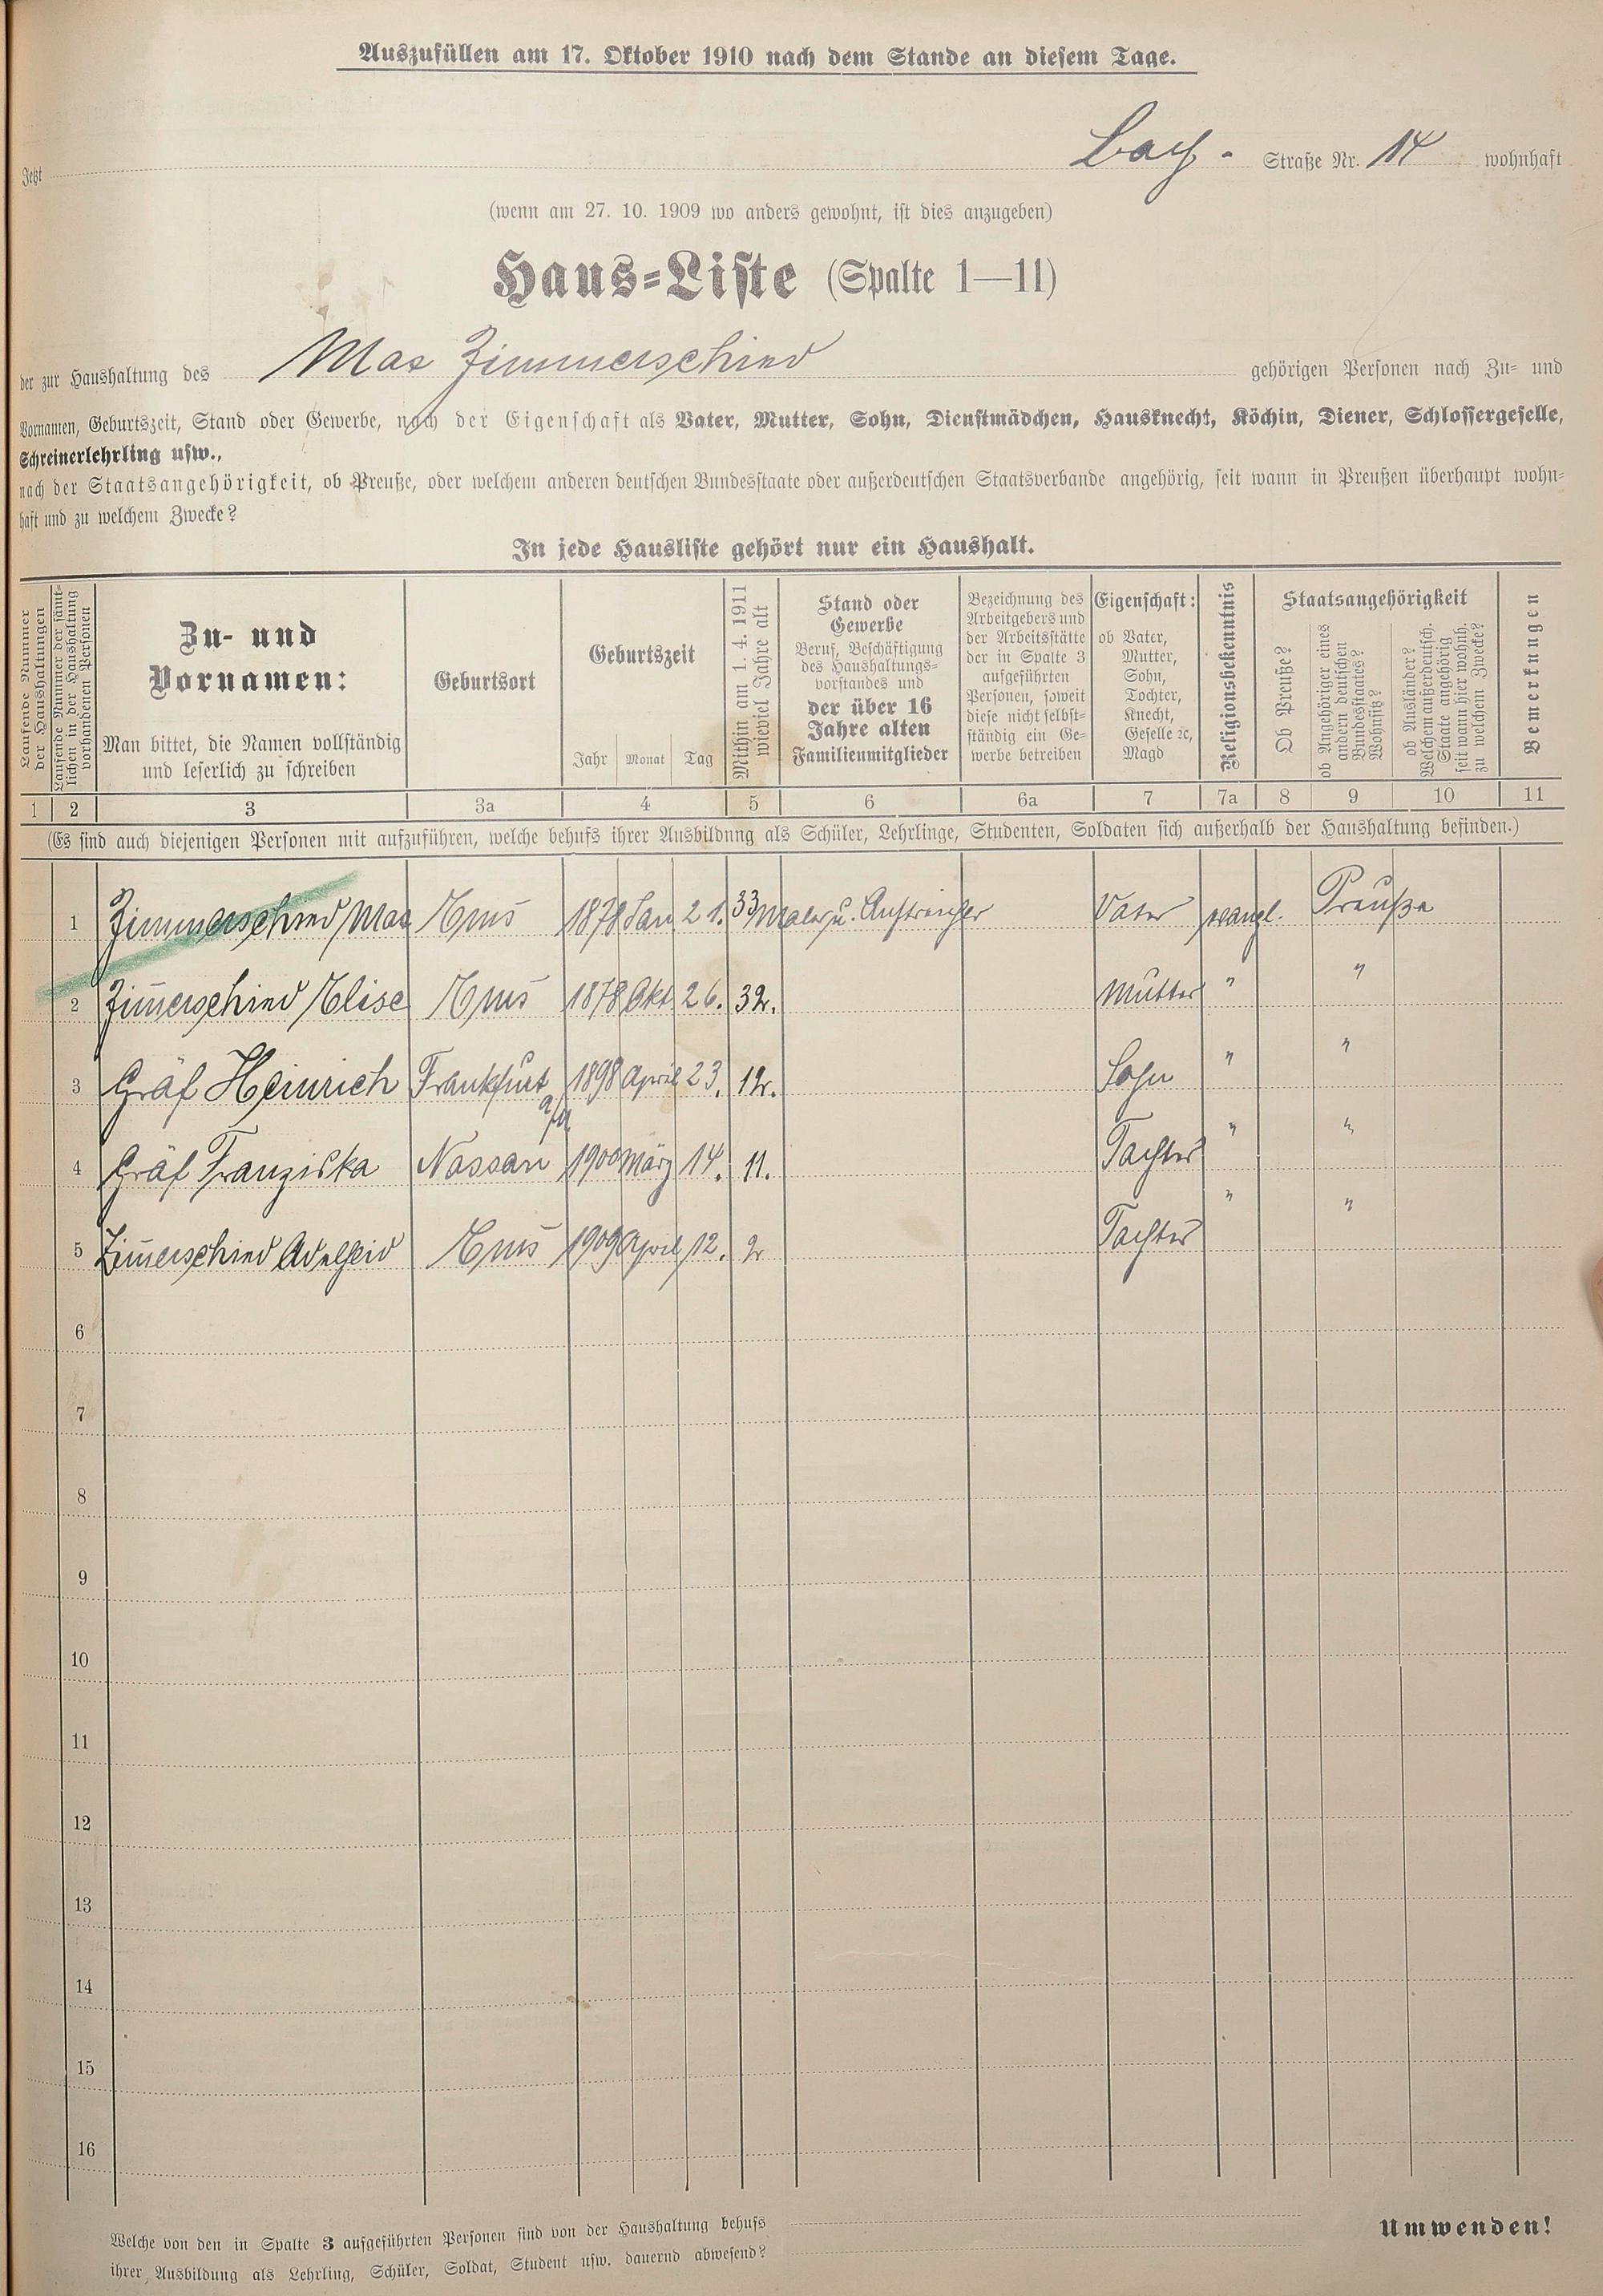 Auszufüllen am 17. Oktober 1910 nach dem Stande an diesem Tage.
Jetzt Bach - Straße Nr. 14 wohnhaft
(wenn am 27. 10. 1909 wo anders gewohnt, ist dies anzugeben)
Haus-Liste (Spalte 1—11)
der zur Haushaltung des Max Zimmerschied gehörigen Personen nach Zu- und
Vornamen, Geburtszeit, Stand oder Gewerbe, nach der Eigenschaft als Vater, Mutter, Sohn, Dienstmädchen, Hausknecht, Köchin, Diener, Schlossergeselle,
Schreinerlehrling usw.,
nach der Staatsangehörigkeit, ob Preuße, oder welchem anderen deutschen Bundesstaate oder außerdeutschen Staatsverbande angehörig, seit wann in Preußen überhaupt wohn-
haft und zu welchem Zwecke?
In jede Hausliste gehört nur ein Haushalt.
Laufende Nummer
der Haushaltungen
Laufende Nummer der sämt-
lichen in der Haushaltung
vorhandenen Personen
Zu- und
Vornamen:
Man bittet, die Namen vollständig
und leserlich zu schreiben
Geburtsort
Geburtszeit
Jahr Monat Tag
Mithin am 1. 4. 1911
wieviel Jahre alt
Stand oder
Gewerbe
Beruf, Beschäftigung
des Haushaltungs-
vorstandes und
der über 16
Jahre alten
Familienmitglieder
Bezeichnung des
Arbeitgebers und
der Arbeitsstätte
der in Spalte 3
aufgeführten
Personen, soweit
diese nicht selbst-
ständig ein Ge-
werbe betreiben
Eigenschaft:
ob Vater,
Mutter,
Sohn,
Tochter,
Knecht,
Geselle ꝛc,
Magd
Religionsbekenntnis
Staatsangehörigkeit
Ob Preuße?
ob Angehöriger eines
andern deutschen
Bundesstaates?
Wohnsitz?
ob Ausländer?
Welchem außerdeutsch.
Staate angehörig
seit wann hier wohnh.
zu welchem Zwecke?
Bemerkungen
1 2 3 3a 4 5 6 6a 7 7a 8 9 10 11
(Es sind auch diejenigen Personen mit aufzuführen, welche behufs ihrer Ausbildung als Schüler, Lehrlinge, Studenten, Soldaten sich außerhalb der Haushaltung befinden.)
1 Zimmerschied Max Ems 1878 Jan 21. 33 Maler u. Anstreicher Vater evangl. Preuße
2 Zim̄erschied Elise Ems 1878 Okt. 26. 32. Mutter " "
3 Gräf Heinrich Frankfurt 1898 April 23. 12. Sohn " "
4 Gräf Franziska Nassau 1900 März 14. 11. Tochter " "
5 Zim̄erschied Adelheid Ems 1909 April 12. 2 Tochter " "
6
7
8
9
10
11
12
13
14
15
16
Welche von den in Spalte 3 aufgeführten Personen sind von der Haushaltung behufs
ihrer Ausbildung als Lehrling, Schüler, Soldat, Student usw. dauernd abwesend?
Umwenden!